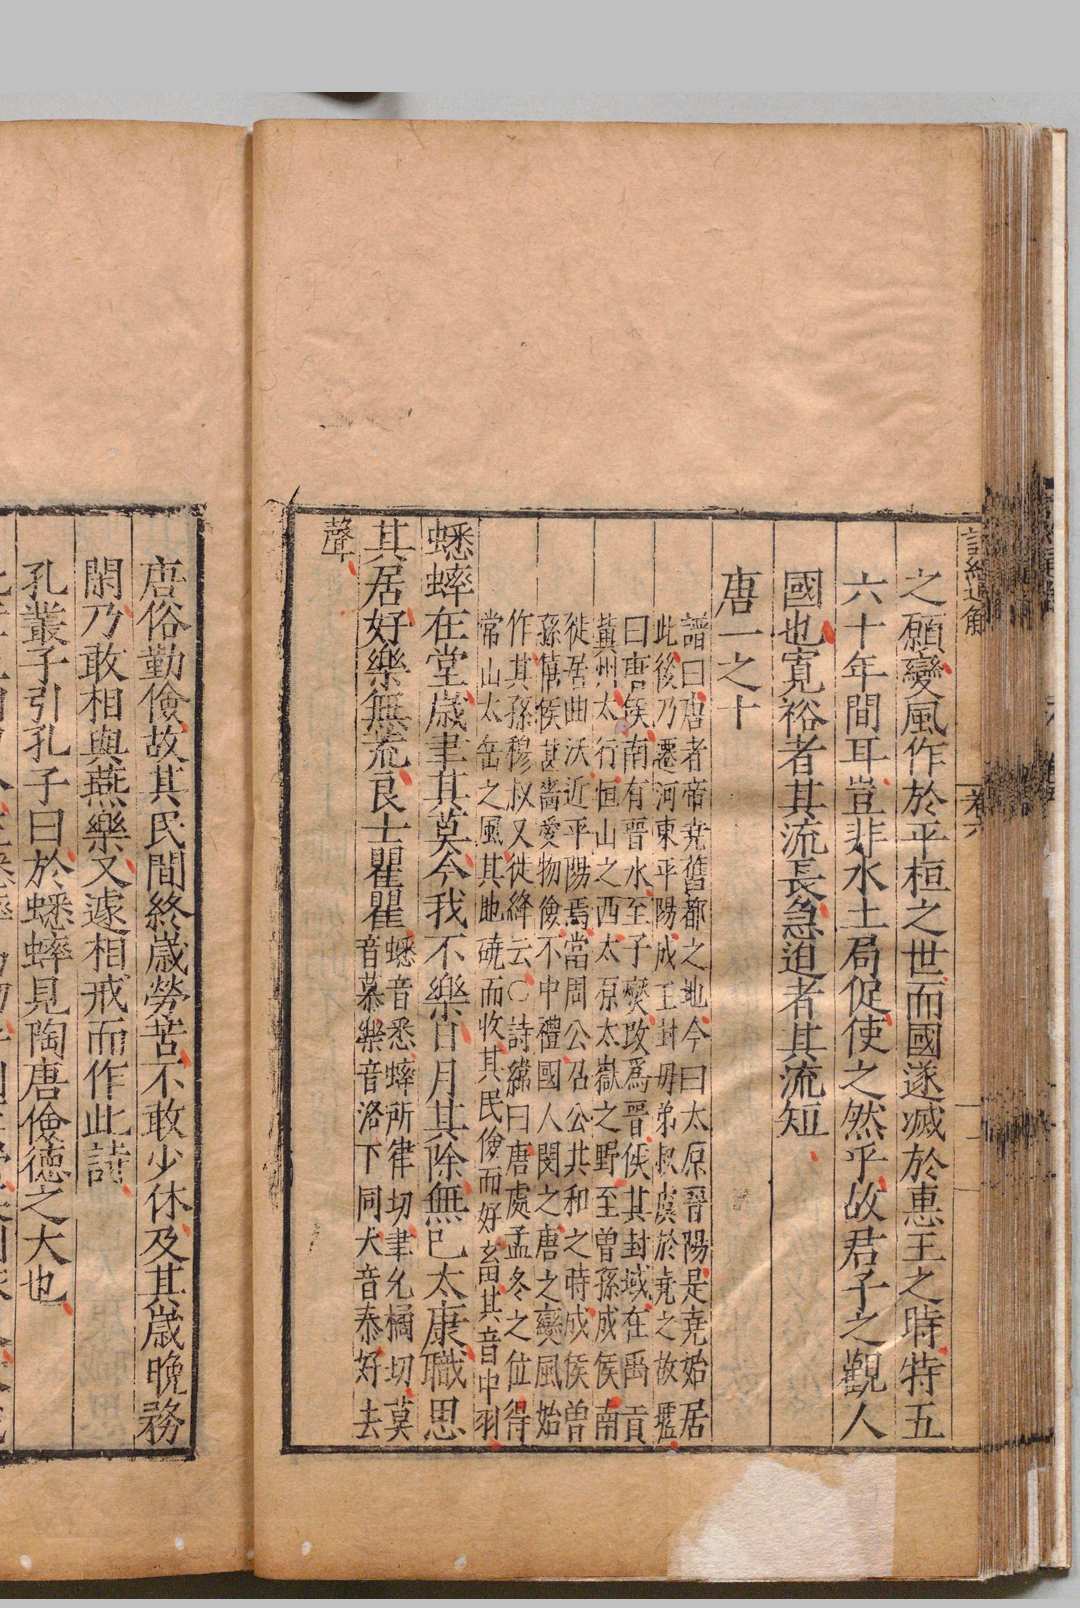 詩經通解
卷六
之願變風作於平桓之世而國遂滅於惠王之時特五
六十年間耳豈非水土局促使之然乎故君子之觀人
國也寬裕者其流長急迫者其流短
唐一之十
譜曰唐者帝堯舊都之地今曰太原晉陽是堯始居
此後乃遷河東平陽成王封母弟叔虞於堯之故墟
曰唐侯南有晉水至子燮改爲晉侯其封域在禹貢
冀州太行恒山之西太原太嶽之野至曾孫成侯南
徙居曲沃近平陽焉當周公召公共和之時成侯曾
孫僖侯甚嗇愛物儉不中禮國人閔之唐之變風始
作其孫穆叔又徙絳云○詩緯曰唐處孟冬之位得
常山太岳之風其地磽而收其民儉而好畜其音中羽
蟋蟀在堂歲聿其莫今我不樂日月其除無已太康職思
其居好樂無荒良士瞿瞿
蟋音悉蟀所律切聿允橘切莫
音慕樂音洛下同大音泰好去
聲
唐俗勤儉故其民間終歲勞苦不敢少休及其歲晚務
閑乃敢相與燕樂又遽相戒而作此詩
孔叢子引孔子曰於蟋蟀見陶唐儉德之大也